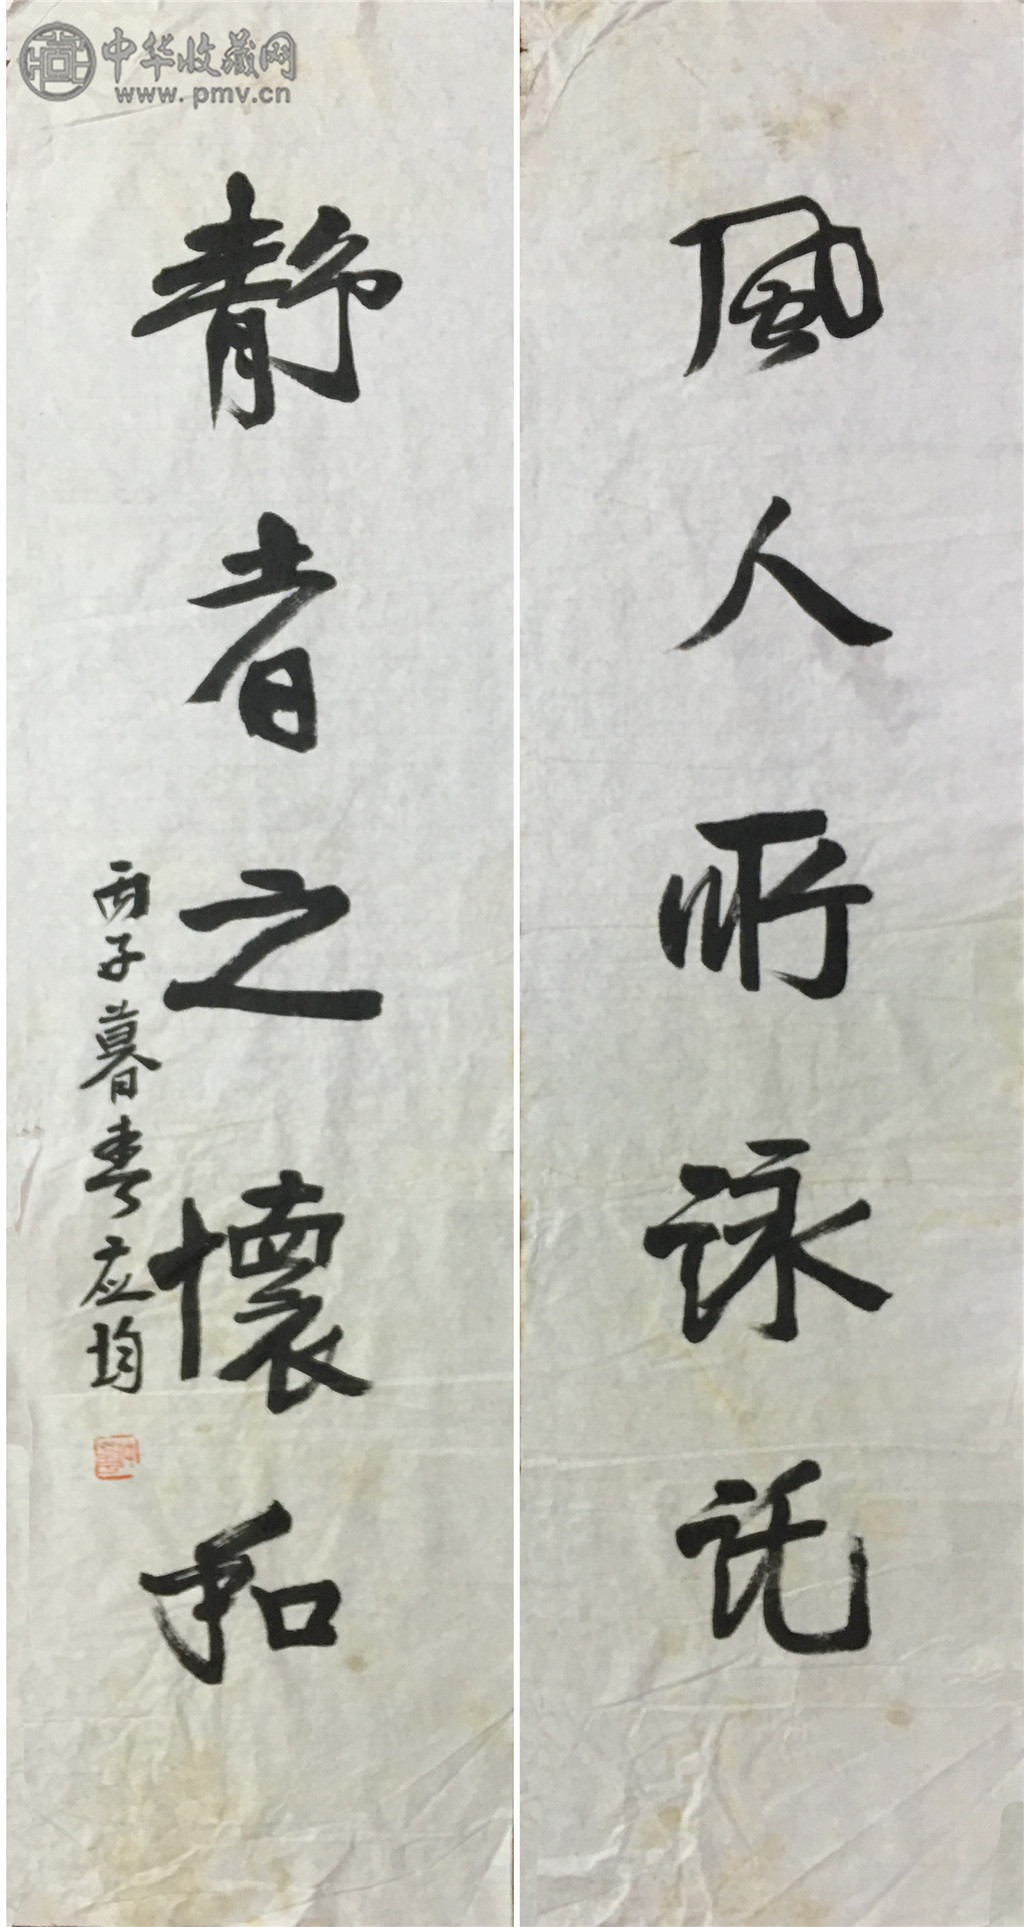 中华收藏网
www.pmv.cn
風人所詠託
静者之懷和
丙子暮春应均